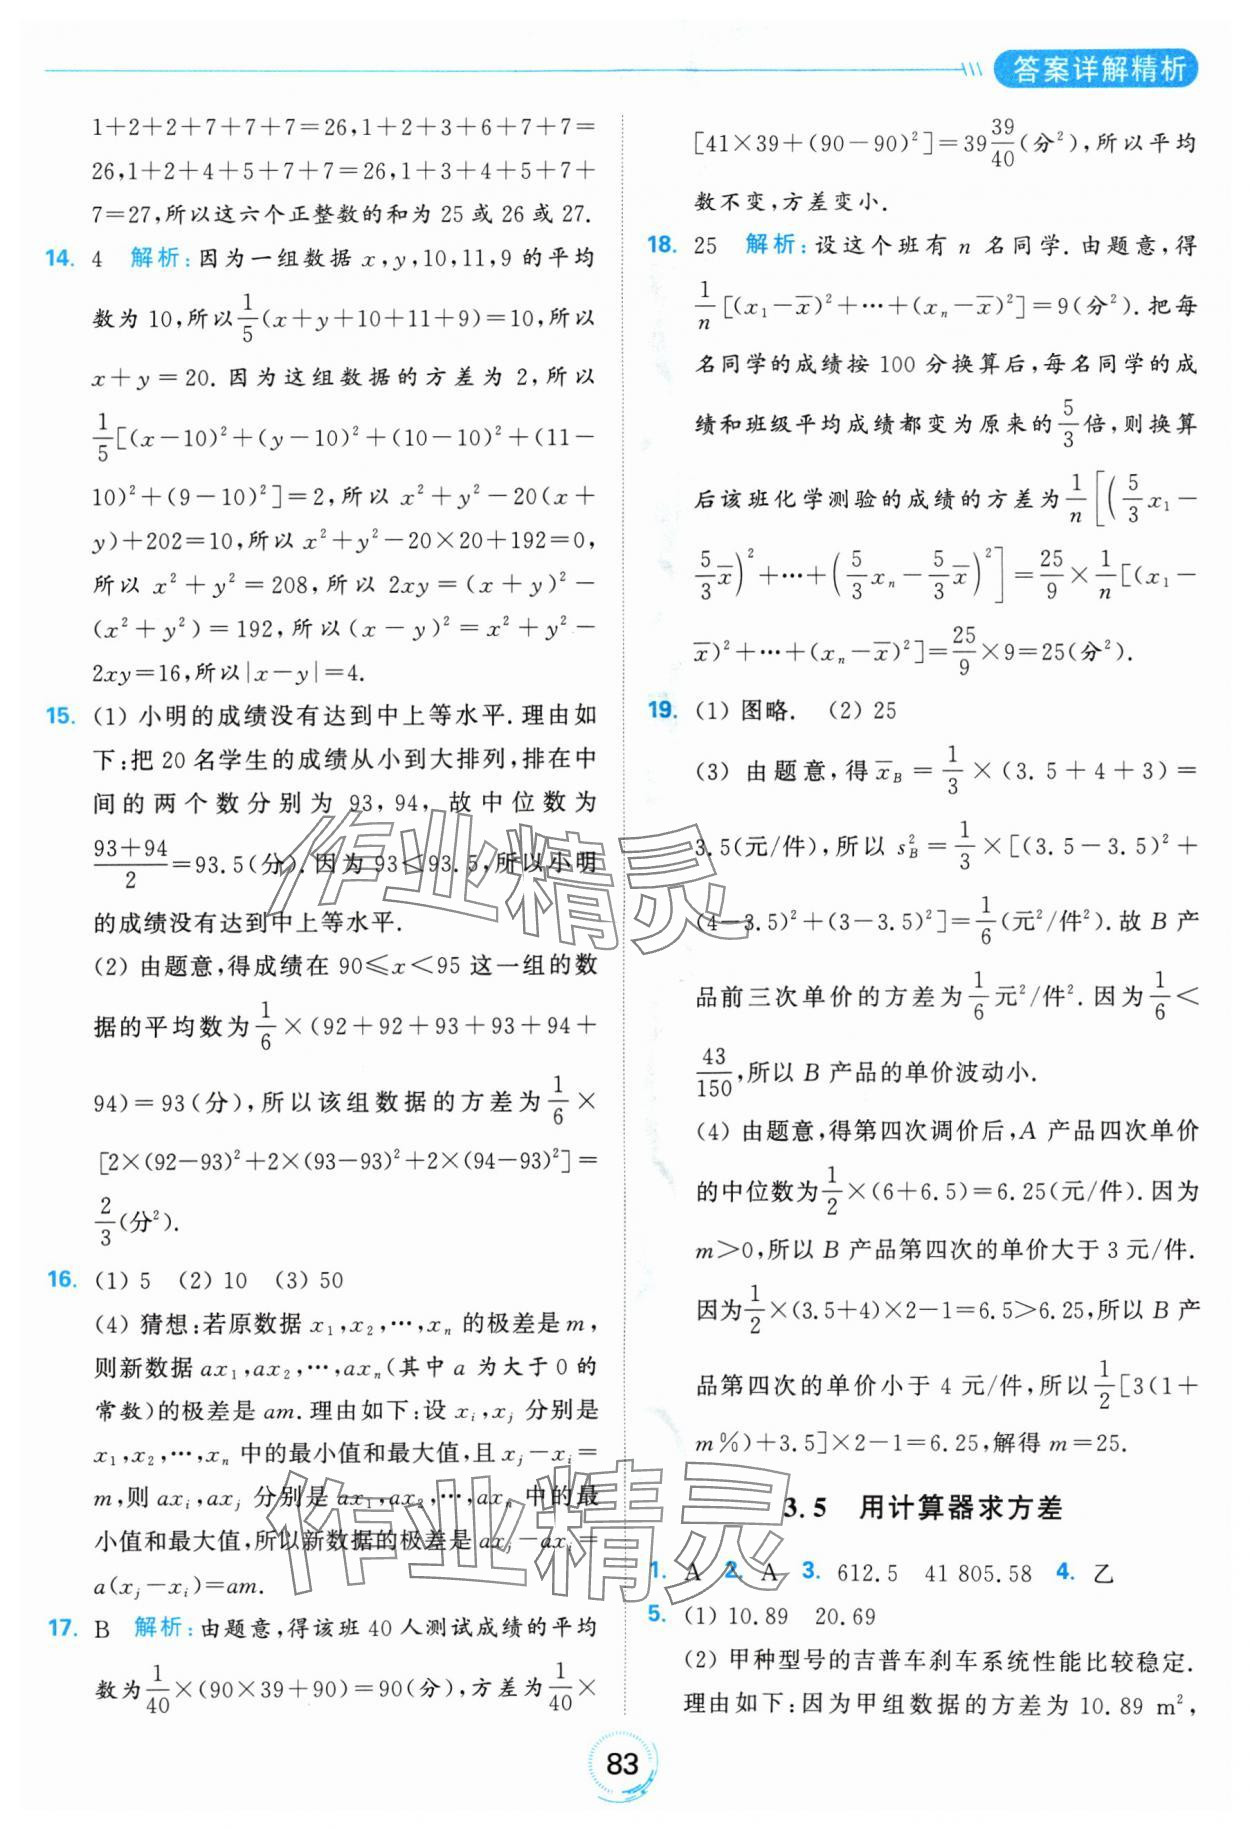 答案详解精析
1+2+2+7+7+7=26,1+2+3+6+7+7=
26,1+2+4+5+7+7=26,1+3+4+5+7+
7=27,所以这六个正整数的和为 25 或 26 或 27.
14. 4 解析:因为一组数据 x,y,10,11,9 的平均
数为 10,所以1/5(x+y+10+11+9)=10,所以
x+y=20. 因为这组数据的方差为 2,所以
1/5[(x-10)²+(y-10)²+(10-10)²+(11-
10)²+(9-10)²]=2,所以 x²+y²-20(x+
y)+202=10,所以 x²+y²-20×20+192=0,
所以 x²+y²=208,所以 2xy=(x+y)²-
(x²+y²)=192,所以(x-y)²=x²+y²-
2xy=16,所以|x-y|=4.
15. (1) 小明的成绩没有达到中上等水平.理由如
下:把 20 名学生的成绩从小到大排列,排在中
间的两个数分别为 93,94,故中位数为
(93+94)/2=93.5(分).因为 93<93.5,所以小明
的成绩没有达到中上等水平.
(2) 由题意,得成绩在 90≤x<95 这一组的数
据的平均数为1/6×(92+92+93+93+94+
94)=93(分),所以该组数据的方差为1/6×
[2×(92-93)²+2×(93-93)²+2×(94-93)²]=
2/3(分²).
16. (1) 5 (2) 10 (3) 50
(4) 猜想:若原数据 x₁,x₂,…,xₙ 的极差是 m,
则新数据 ax₁,ax₂,…,axₙ(其中 a 为大于 0 的
常数)的极差是 am.理由如下:设 xᵢ,xⱼ 分别是
x₁,x₂,…,xₙ 中的最小值和最大值,且 xⱼ-xᵢ=
m,则 axᵢ,axⱼ 分别是 ax₁,ax₂,…,axₙ 中的最
小值和最大值,所以新数据的极差是 axⱼ-axᵢ=
a(xⱼ-xᵢ)=am.
17. B 解析:由题意,得该班 40 人测试成绩的平均
数为1/40×(90×39+90)=90(分),方差为1/40×
[41×39+(90-90)²]=39 39/40(分²),所以平均
数不变,方差变小.
18. 25 解析:设这个班有 n 名同学.由题意,得
1/n[(x₁-x̄)²+…+(xₙ-x̄)²]=9(分²).把每
名同学的成绩按 100 分换算后,每名同学的成
绩和班级平均成绩都变为原来的5/3倍,则换算
后该班化学测验的成绩的方差为1/n[(5/3x₁-
5/3x̄)²+…+(5/3xₙ-5/3x̄)²]=25/9×1/n[(x₁-
x̄)²+…+(xₙ-x̄)²]=25/9×9=25(分²).
19. (1) 图略. (2) 25
(3) 由题意,得x̄_B=1/3×(3.5+4+3)=
3.5(元/件),所以 s²_B=1/3×[(3.5-3.5)²+
(4-3.5)²+(3-3.5)²]=1/6(元²/件²).故 B 产
品前三次单价的方差为1/6元²/件².因为1/6<
43/150,所以 B 产品的单价波动小.
(4) 由题意,得第四次调价后,A 产品四次单价
的中位数为1/2×(6+6.5)=6.25(元/件).因为
m>0,所以 B 产品第四次的单价大于 3 元/件.
因为1/2×(3.5+4)×2-1=6.5>6.25,所以 B 产
品第四次的单价小于 4 元/件,所以1/2[3(1+
m%)+3.5]×2-1=6.25,解得 m=25.
3.5 用计算器求方差
1. A 2. A 3. 612.5 41 805.58 4. 乙
5. (1) 10.89 20.69
(2) 甲种型号的吉普车刹车系统性能比较稳定.
理由如下:因为甲组数据的方差为 10.89 m²,
83
作业精灵
作业精灵